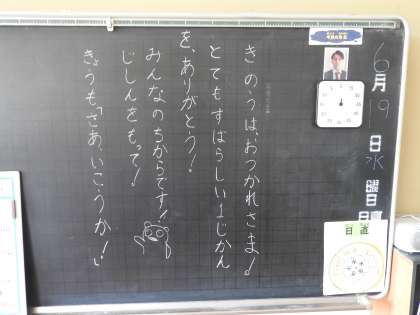 6月19日水曜日
日直
きのうは、おつかれさま！
とてもすばらしい1じかん
を、ありがとう！
みんなのちからです！
じしんをもって！
きょうも「さあ、いこうか！」